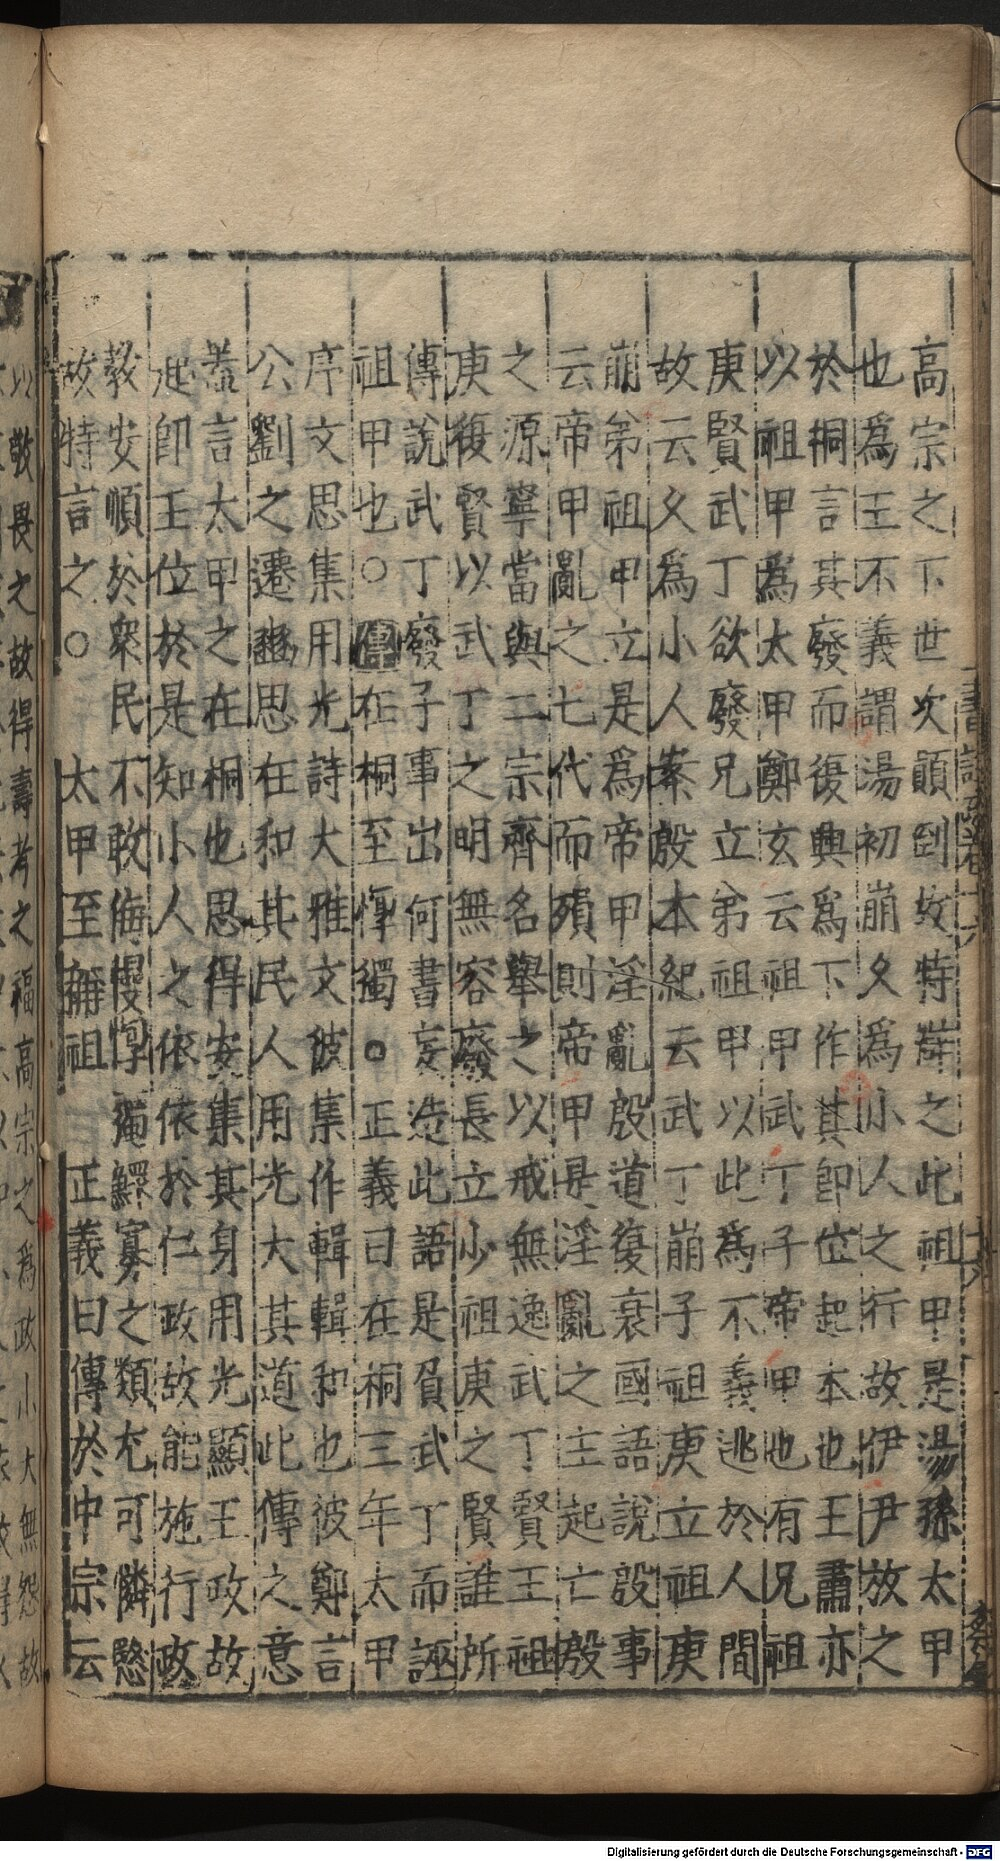 高宗之下世次顛到故特辯之此祖甲是湯孫太甲
也為王不義謂湯初崩久為小人之行故伊尹放之
於桐言其廢而復興為下作其即位起本也王肅亦
以祖甲為太甲鄭玄云祖甲武丁子帝甲也有兄祖
庚賢武丁欲廢兄立弟祖甲以此為不義逃於人間
故云久為小人案殷本紀云武丁崩子祖庚立祖庚
崩弟祖甲立是為帝甲淫亂殷道復衰國語說殷事
云帝甲亂之七代而殞則帝甲是淫亂之主起亡殷
之源寧當與二宗齊名舉之以戒無逸武丁賢王祖
庚復賢以武丁之明無容廢長立少祖庚之賢誰所
傳說武丁廢子事出何書妄造此語是負武丁而誣
祖甲也○傳在桐至惸獨○正義曰在桐三年太甲
序文思集用光詩大雅文彼集作輯輯和也彼鄭言
公劉之遷豳思在和其民人用光大其道此傳之意
蓋言太甲之在桐也思得安集其身用光顯王政故
起即王位於是知小人之依依於仁政故能施行政
教安順於衆民不敢侮慢惸獨鰥寡之類尤可憐愍
故特言之○　太甲至稱祖　正義曰傳於中宗云
以敬畏之故得壽考之福高宗之為政小大無怨故
Digitalisierung gefördert durch die Deutsche Forschungsgemeinschaft - DFG